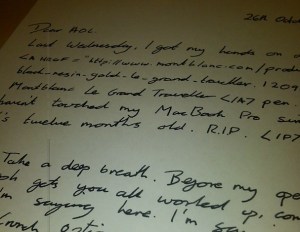 26th Octo
Dear AOL.
Last Wednesday, I got my hands on a
<A HREF="http://www.montblanc.com/produ
black-resin-gold-le-grand-traveller.1209
Montblanc Le Grand Traveller </A> pen.
haven't touched my MacBook Pro sin
's twelve months old. R.I.P.
Take a deep breath. Before my ope
ph gets you all worked up, con
I'm saying here. I'm sa